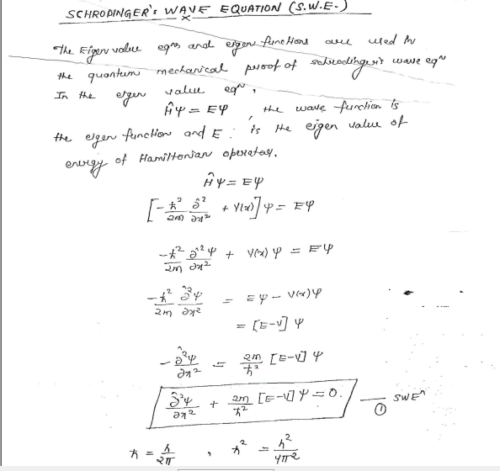 SCHRODINGER'S WAVE EQUATION (S.W.E.)
The Eigen value eqns and eigen functions are used in
the quantum mechanical proof of schrodinger's wave eqn
In the eigen value eqn,
Ĥψ = Eψ , the wave function is
the eigen function and E : is the eigen value of
energy of Hamiltonian operator.
Ĥψ = Eψ
[-ħ²/2m ∂²/∂x² + V(x)] ψ = Eψ
-ħ²/2m ∂²ψ/∂x² + V(x) ψ = Eψ
-ħ²/2m ∂²ψ/∂x² = Eψ - V(x)ψ
= [E-V] ψ
-∂²ψ/∂x² = 2m/ħ² [E-V] ψ
∂²ψ/∂x² + 2m/ħ² [E-V] ψ = 0. — ① SWEn
ħ = h/2π , ħ² = h²/4π²